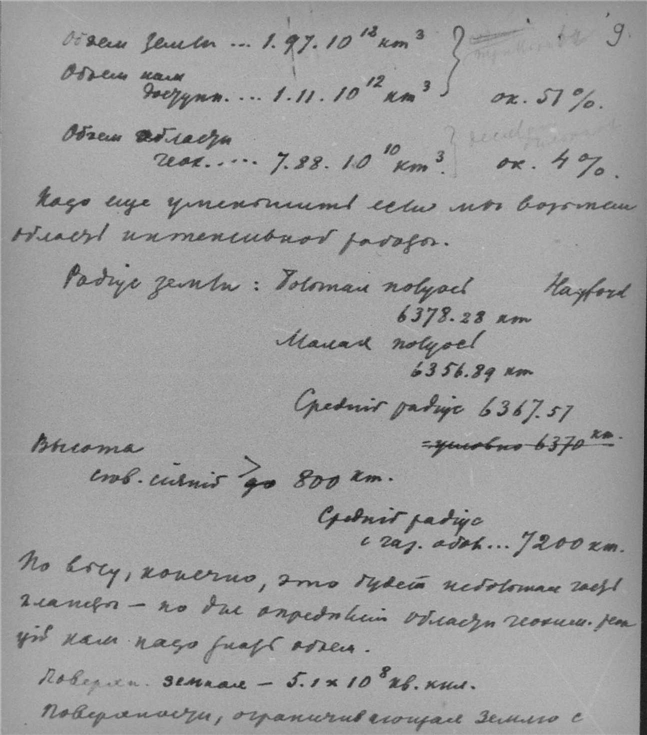 9.
Объем Земли ... 1.97.10¹² km³
Объем нам
доступн. ... 1.11.10¹² km³ ок. 57%.
Объем области
геох. .... 7.88.10¹⁰ km³. ок. 4%.
Надо еще уменьшить если мы возьмем
область интенсивной работы.
Радіус земли: Большая полуось Hayford
6378.28 km
Малая полуось
6356.89 km
Средній радіус 6367.57
= условно 6370 km.
Высота
сев. сіяній > до 800 km.
Средній радіус
с газ. обол... 7200 km.
По весу, конечно, это будет небольшая часть
планеты — но для определенія области геохим.
цій нам надо знать объем.
Поверхн. земная — 5.1 × 10⁸ кв. кил.
Поверхности, ограничивающая Землю с